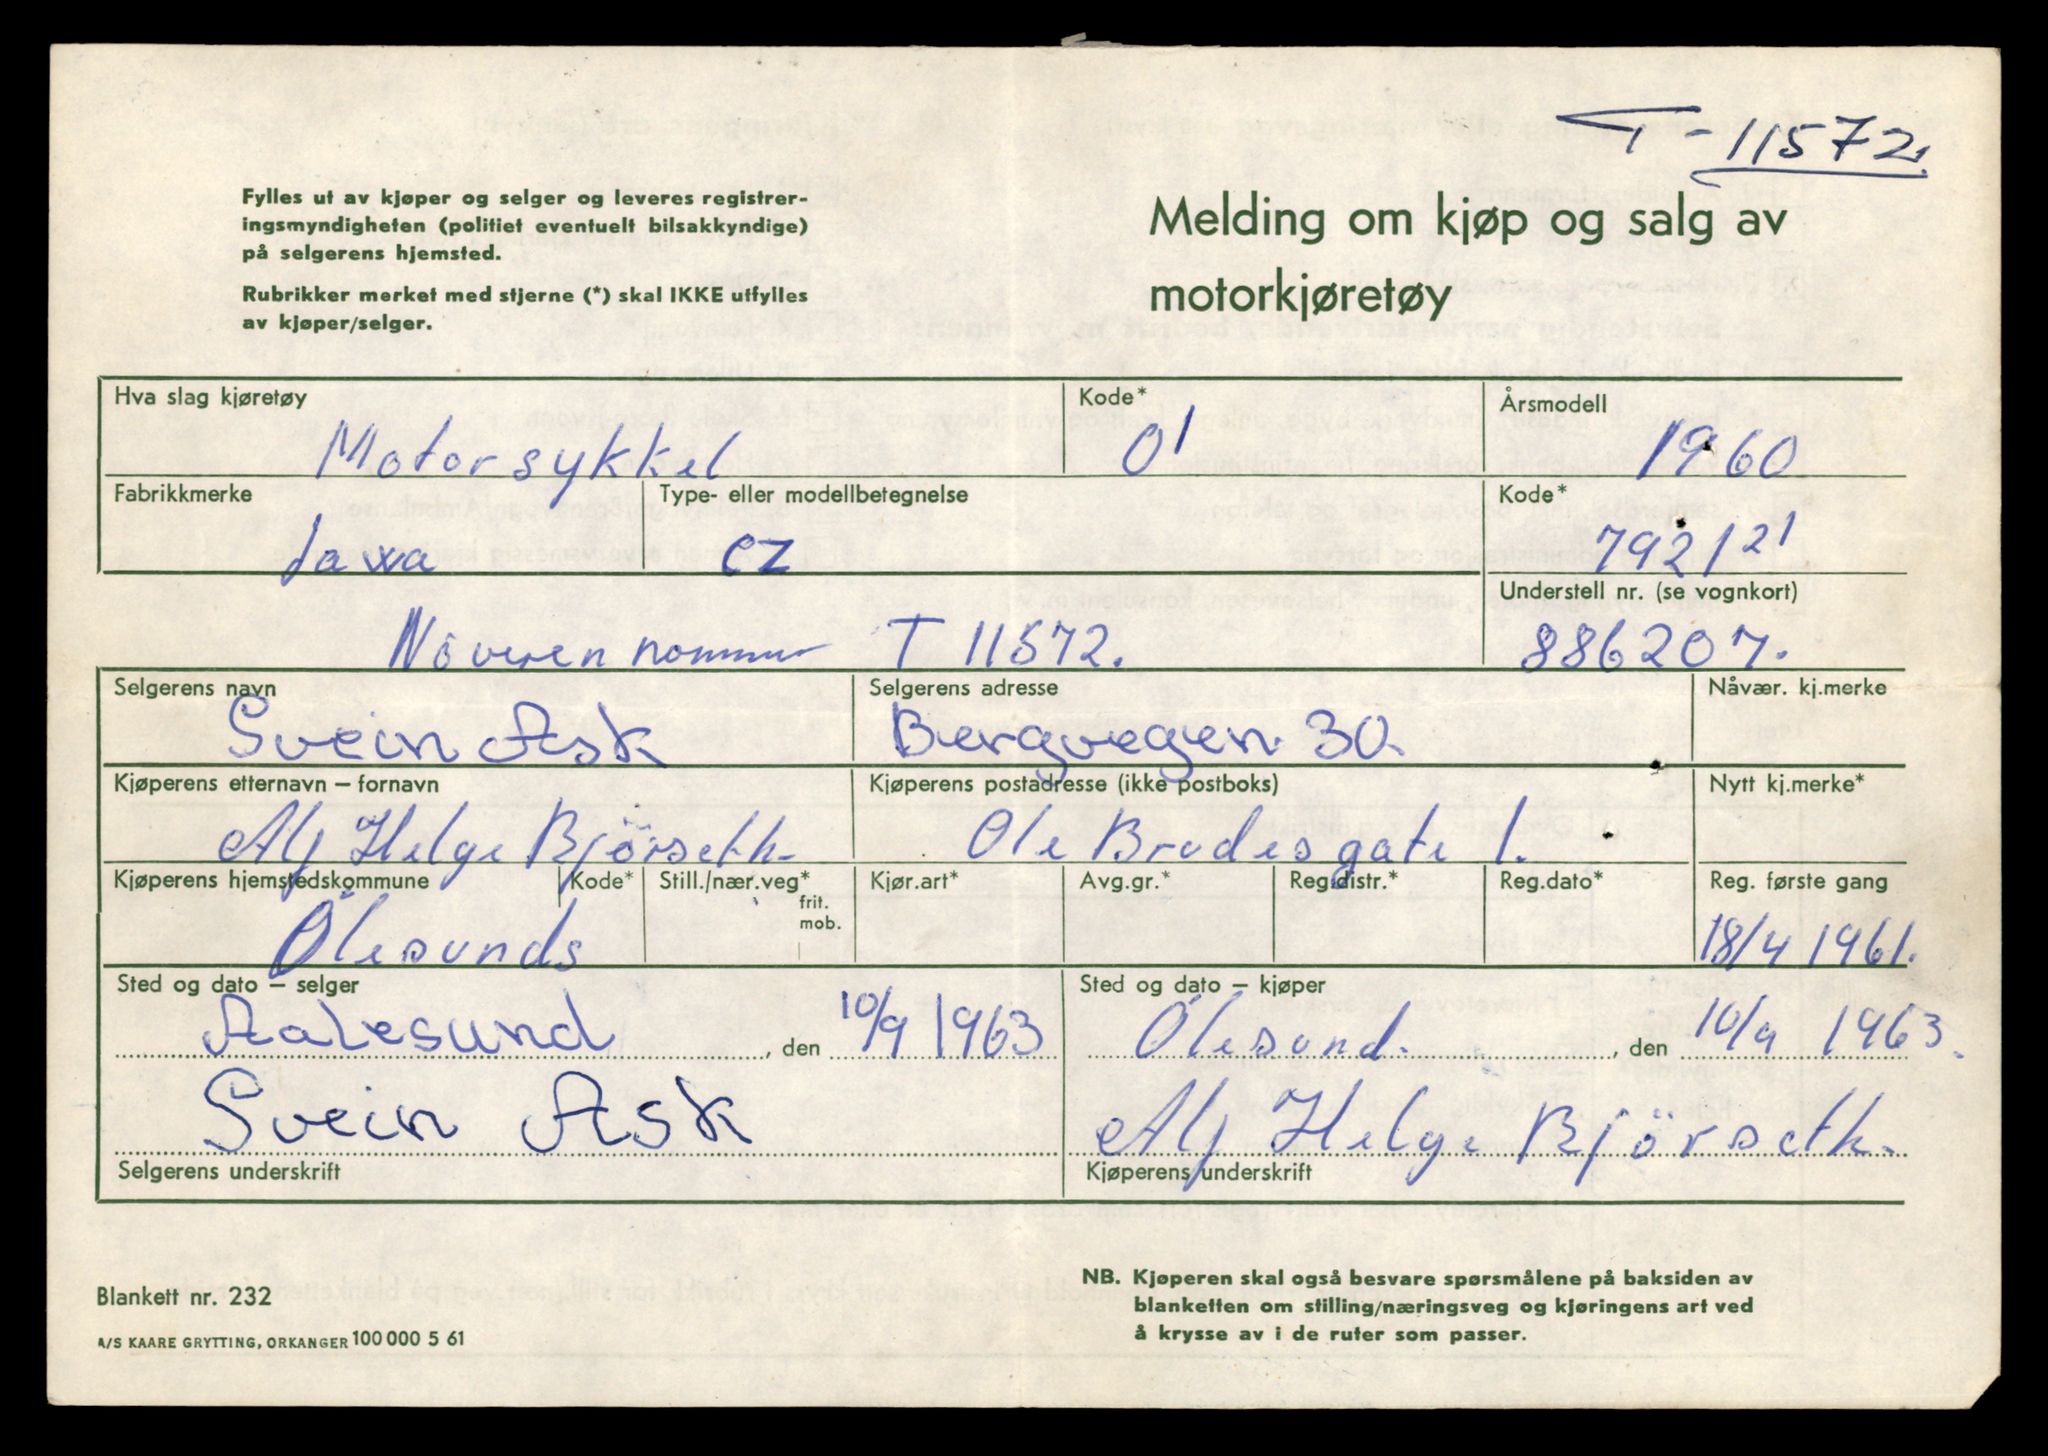 T-11572.
Fylles ut av kjøper og selger og leveres registrer-
ingsmyndigheten (politiet eventuelt bilsakkyndige)
på selgerens hjemsted.
Rubrikker merket med stjerne (*) skal IKKE utfylles
av kjøper/selger.
Melding om kjøp og salg av
motorkjøretøy
Hva slag kjøretøy Kode* Årsmodell
Motorsykkel 01 1960
Fabrikkmerke Type- eller modellbetegnelse Kode*
Jawa CZ 792121
Understell nr. (se vognkort)
T 11572. 886207.
Selgerens navn Selgerens adresse Nåvær. kj.merke
Svein Ask Bergvegen 30.
Kjøperens etternavn – fornavn Kjøperens postadresse (ikke postboks) Nytt kj.merke*
Alf Helge Bjørseth. Ole Brudesgate 1.
Kjøperens hjemstedskommune Kode* Still./nær.veg* frit. mob. Kjør.art* Avg.gr.* Reg.distr.* Reg.dato* Reg. første gang
Ålesunds 18/4 1961.
Sted og dato – selger Sted og dato – kjøper
Aalesund, den 10/9 1963 Ålesund., den 10/9 1963.
Svein Ask Alf Helge Bjørseth.
Selgerens underskrift Kjøperens underskrift
Blankett nr. 232
A/S KAARE GRYTTING, ORKANGER 100 000 5 61
NB. Kjøperen skal også besvare spørsmålene på baksiden av
blanketten om stilling/næringsveg og kjøringens art ved
å krysse av i de ruter som passer.